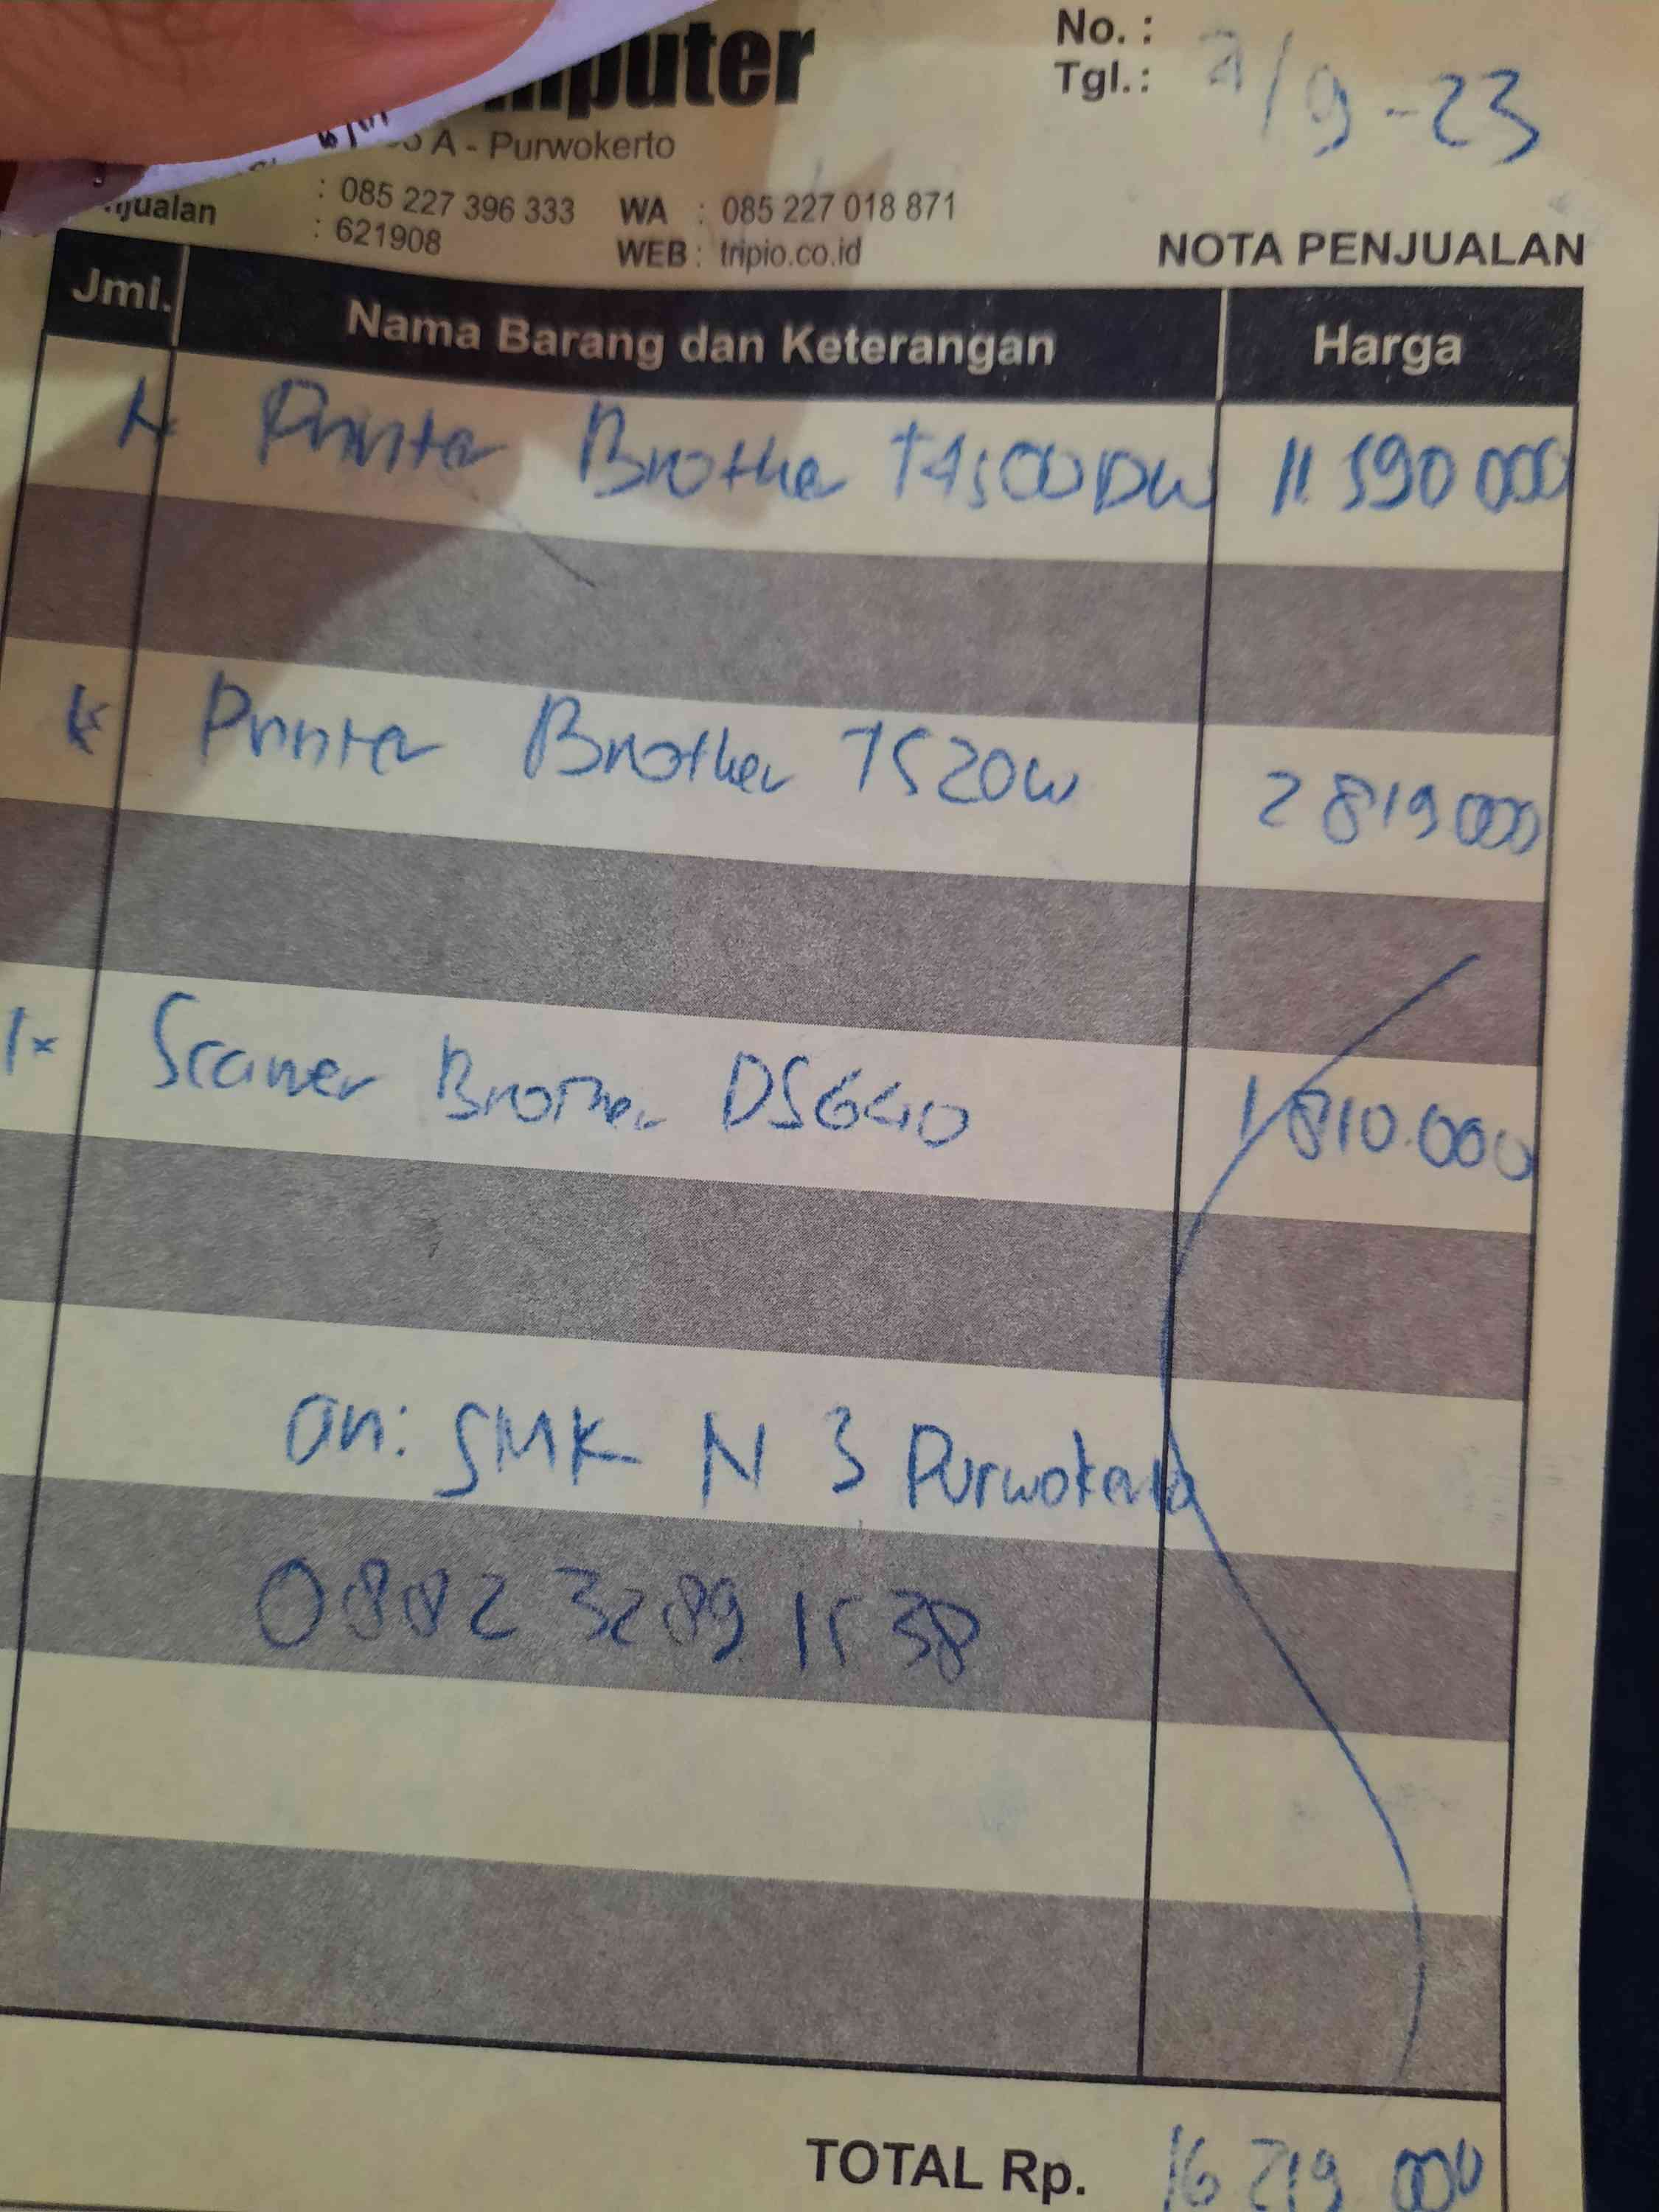 No. :
Tgl. : /9-23
A - Purwokerto
: 085 227 396 333 WA : 085 227 018 871
: 621908 WEB : tripio.co.id
NOTA PENJUALAN
Jml. Nama Barang dan Keterangan Harga
Printer Brother T4500DW 11 590 000
Printer Brother T520W 2 819 000
1x Scanner Brother DS640 1 810.000
an: SMK N 3 Purwokerto
0882 3289 1538
TOTAL Rp. 16 219 000